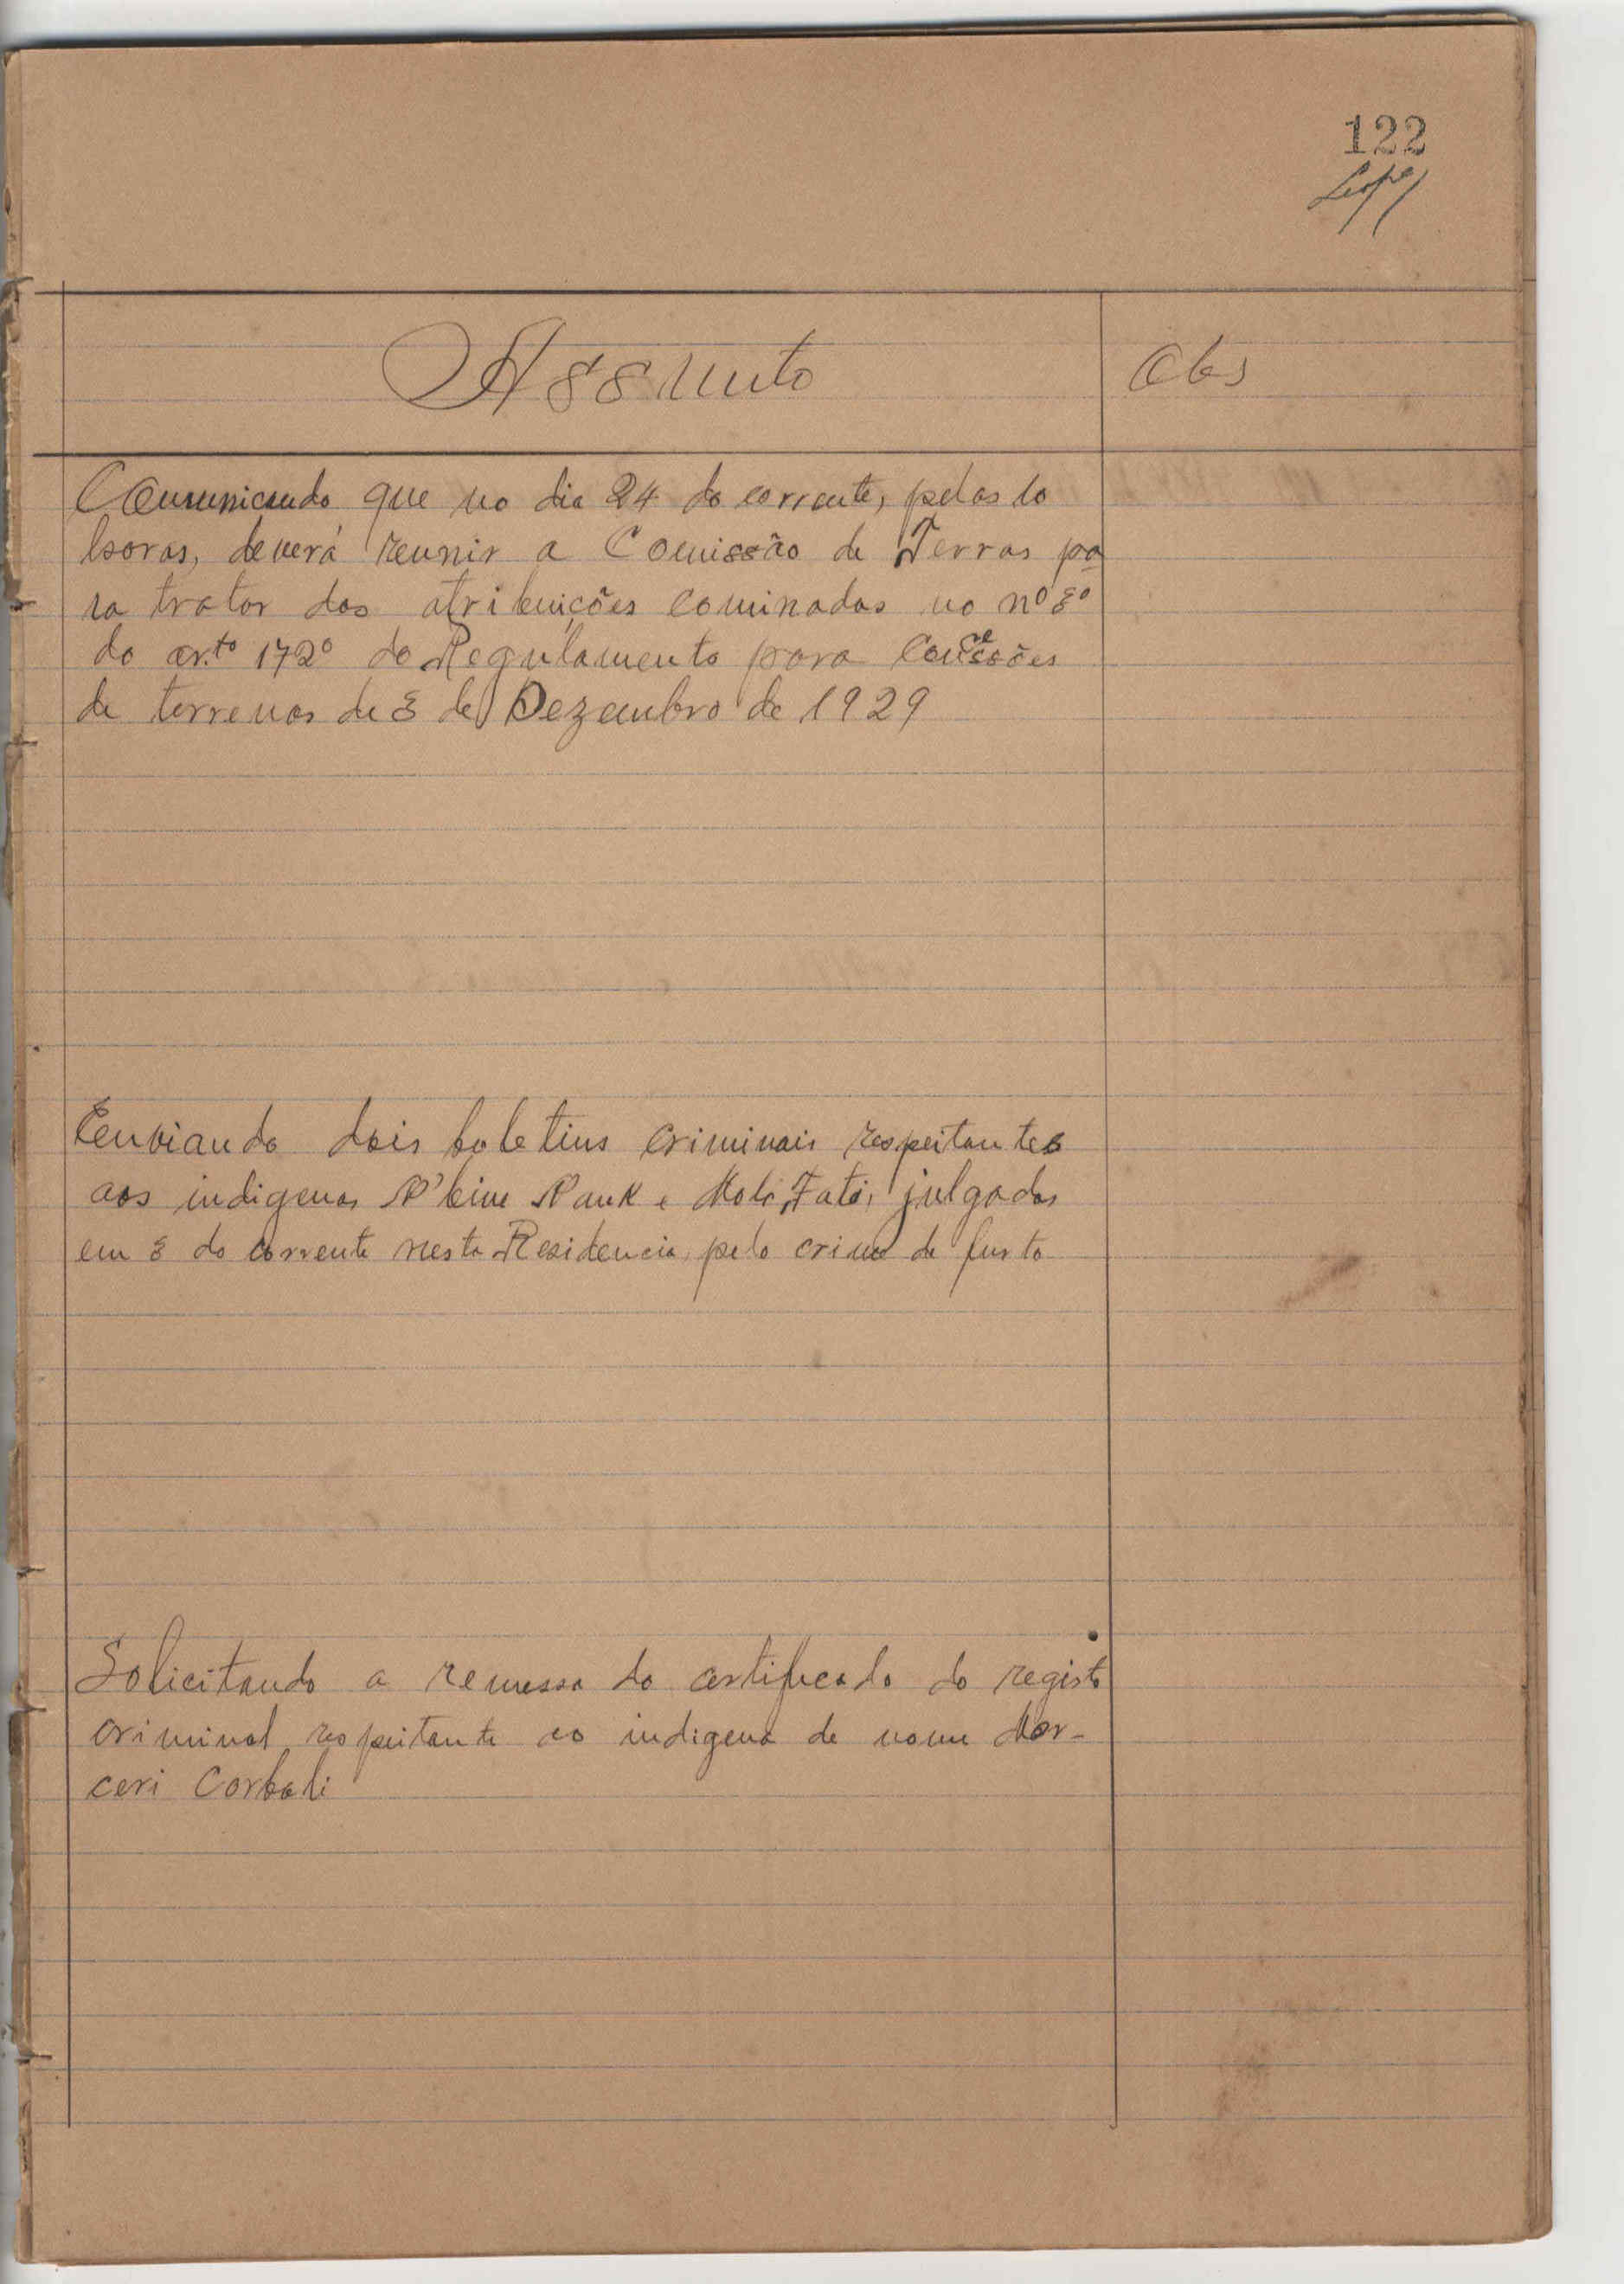 122
Assunto
Obs
Comunicando que no dia 24 do corrente, pelas 10
horas, deverá reunir a Comissão de Terras pa
ra tratar das atribuições cominadas no nº 3º
do art.º 172º do Regulamento para Concessões
de terrenos de 3 de Dezembro de 1929
Enviando dois boletins criminais respeitantes
aos indigenas e julgados
em 3 do corrente nesta Residencia, pelo crime de furto
Solicitando a remessa do certificado do registo
criminal respeitante ao indigena de nome Mar-
ceri Corbali